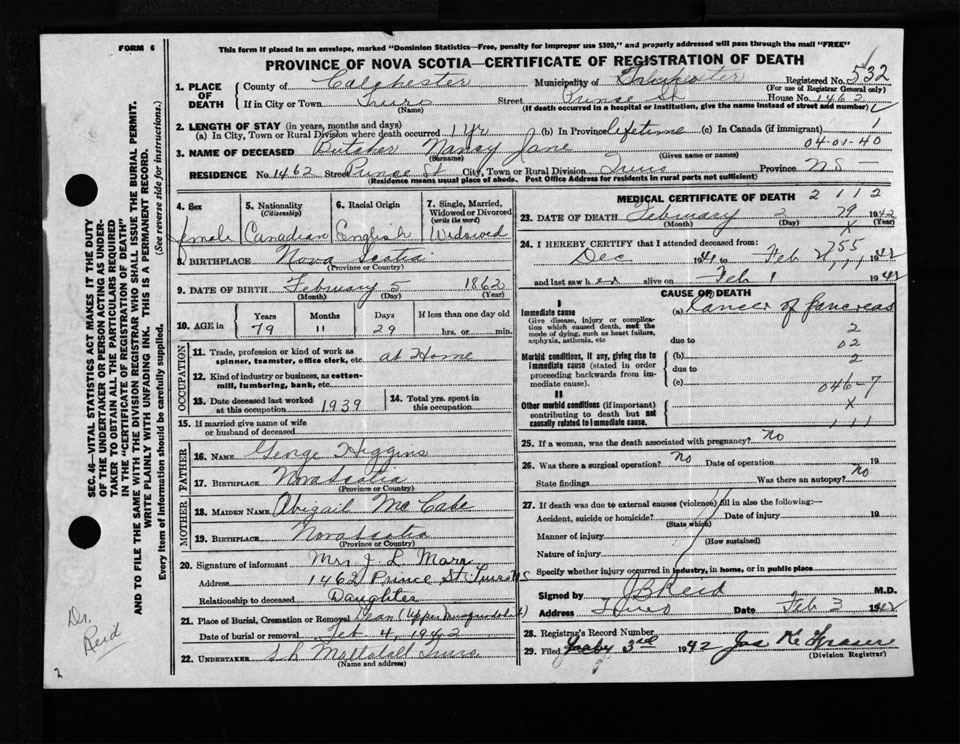 FORM 6
This form if placed in an envelope, marked "Dominion Statistics—Free, penalty for improper use $300," and properly addressed will pass through the mail "FREE"
PROVINCE OF NOVA SCOTIA—CERTIFICATE OF REGISTRATION OF DEATH
1. PLACE OF DEATH County of Colchester Municipality of Registered No. 532
(For use of Registrar General only)
If in City or Town Truro Street Prince St House No. 1462
(Name) (If death occurred in a hospital or institution, give the name instead of street and number)
2. LENGTH OF STAY (in years, months and days)
(a) In City, Town or Rural Division where death occurred 1 yr (b) In Province lifetime (c) In Canada (if immigrant) 1
04-01-40
3. NAME OF DECEASED Butcher Nancy Jane
(Surname) (Given name or names)
RESIDENCE No. 1462 Street Prince St City, Town or Rural Division Truro Province N S —
(Residence means usual place of abode. Post Office Address for residents in rural parts not sufficient)
4. Sex 5. Nationality (Citizenship) 6. Racial Origin 7. Single, Married, Widowed or Divorced (write the word)
female Canadian English Widowed
8. BIRTHPLACE Nova Scotia
(Province or Country)
9. DATE OF BIRTH February 5 1862
(Month) (Day) (Year)
10. AGE in Years Months Days If less than one day old
79 11 29 hrs. or min.
OCCUPATION
11. Trade, profession or kind of work as spinner, teamster, office clerk, etc. at Home
12. Kind of industry or business, as cotton-mill, lumbering, bank, etc.
13. Date deceased last worked at this occupation 1939 14. Total yrs. spent in this occupation
15. If married give name of wife or husband of deceased
FATHER
16. NAME George Higgins
17. BIRTHPLACE Nova Scotia
(Province or Country)
MOTHER
18. MAIDEN NAME Abigail Mc Cabe
19. BIRTHPLACE Nova Scotia
(Province or Country)
20. Signature of informant Mrs J. L. Marr
Address 1462 Prince St. Truro NS
Relationship to deceased Daughter
21. Place of Burial, Cremation or Removal Dean (Upper Musquodoboit)
Date of burial or removal Feb. 4, 1942
22. UNDERTAKER Truro
(Name and address)
MEDICAL CERTIFICATE OF DEATH 2 1 1 2
23. DATE OF DEATH February 2 79 1942
(Month) (Day) X (Year)
24. I HEREBY CERTIFY that I attended deceased from: 755
Dec 1941 to Feb 2 1942
and last saw her alive on Feb 1 1942
CAUSE OF DEATH
I
Immediate cause (a) Cancer of Pancreas
Give disease, injury or complication which caused death, not the mode of dying, such as heart failure, asphyxia, asthenia, etc
2
due to 02
Morbid conditions, if any, giving rise to immediate cause (stated in order proceeding backwards from immediate cause).
(b) 2
due to
(c) 046-7
II
Other morbid conditions (if important) contributing to death but not causally related to immediate cause. X
1 1 1
25. If a woman, was the death associated with pregnancy? No
26. Was there a surgical operation? No Date of operation 19
State findings Was there an autopsy? No
27. If death was due to external causes (violence) fill in also the following:—
Accident, suicide or homicide? Date of injury 19
(State which)
Manner of injury
(How sustained)
Nature of injury
Specify whether injury occurred in industry, in home, or in public place
Signed by J B Reid M.D.
Address Truro Date Feb 3 1942
28. Registrar's Record Number
29. Filed 3rd 1942 Jas K. Fraser
(Division Registrar)
SEC. 46—VITAL STATISTICS ACT MAKES IT THE DUTY
OF THE UNDERTAKER OR PERSON ACTING AS UNDER-
TAKER TO OBTAIN ALL THE PARTICULARS REQUIRED
IN THE "CERTIFICATE OF REGISTRATION OF DEATH"
AND TO FILE THE SAME WITH THE DIVISION REGISTRAR WHO SHALL ISSUE THE BURIAL PERMIT.
WRITE PLAINLY WITH UNFADING INK. THIS IS A PERMANENT RECORD.
Every item of information should be carefully supplied. (See reverse side for instructions.)
Dr. Reid
2